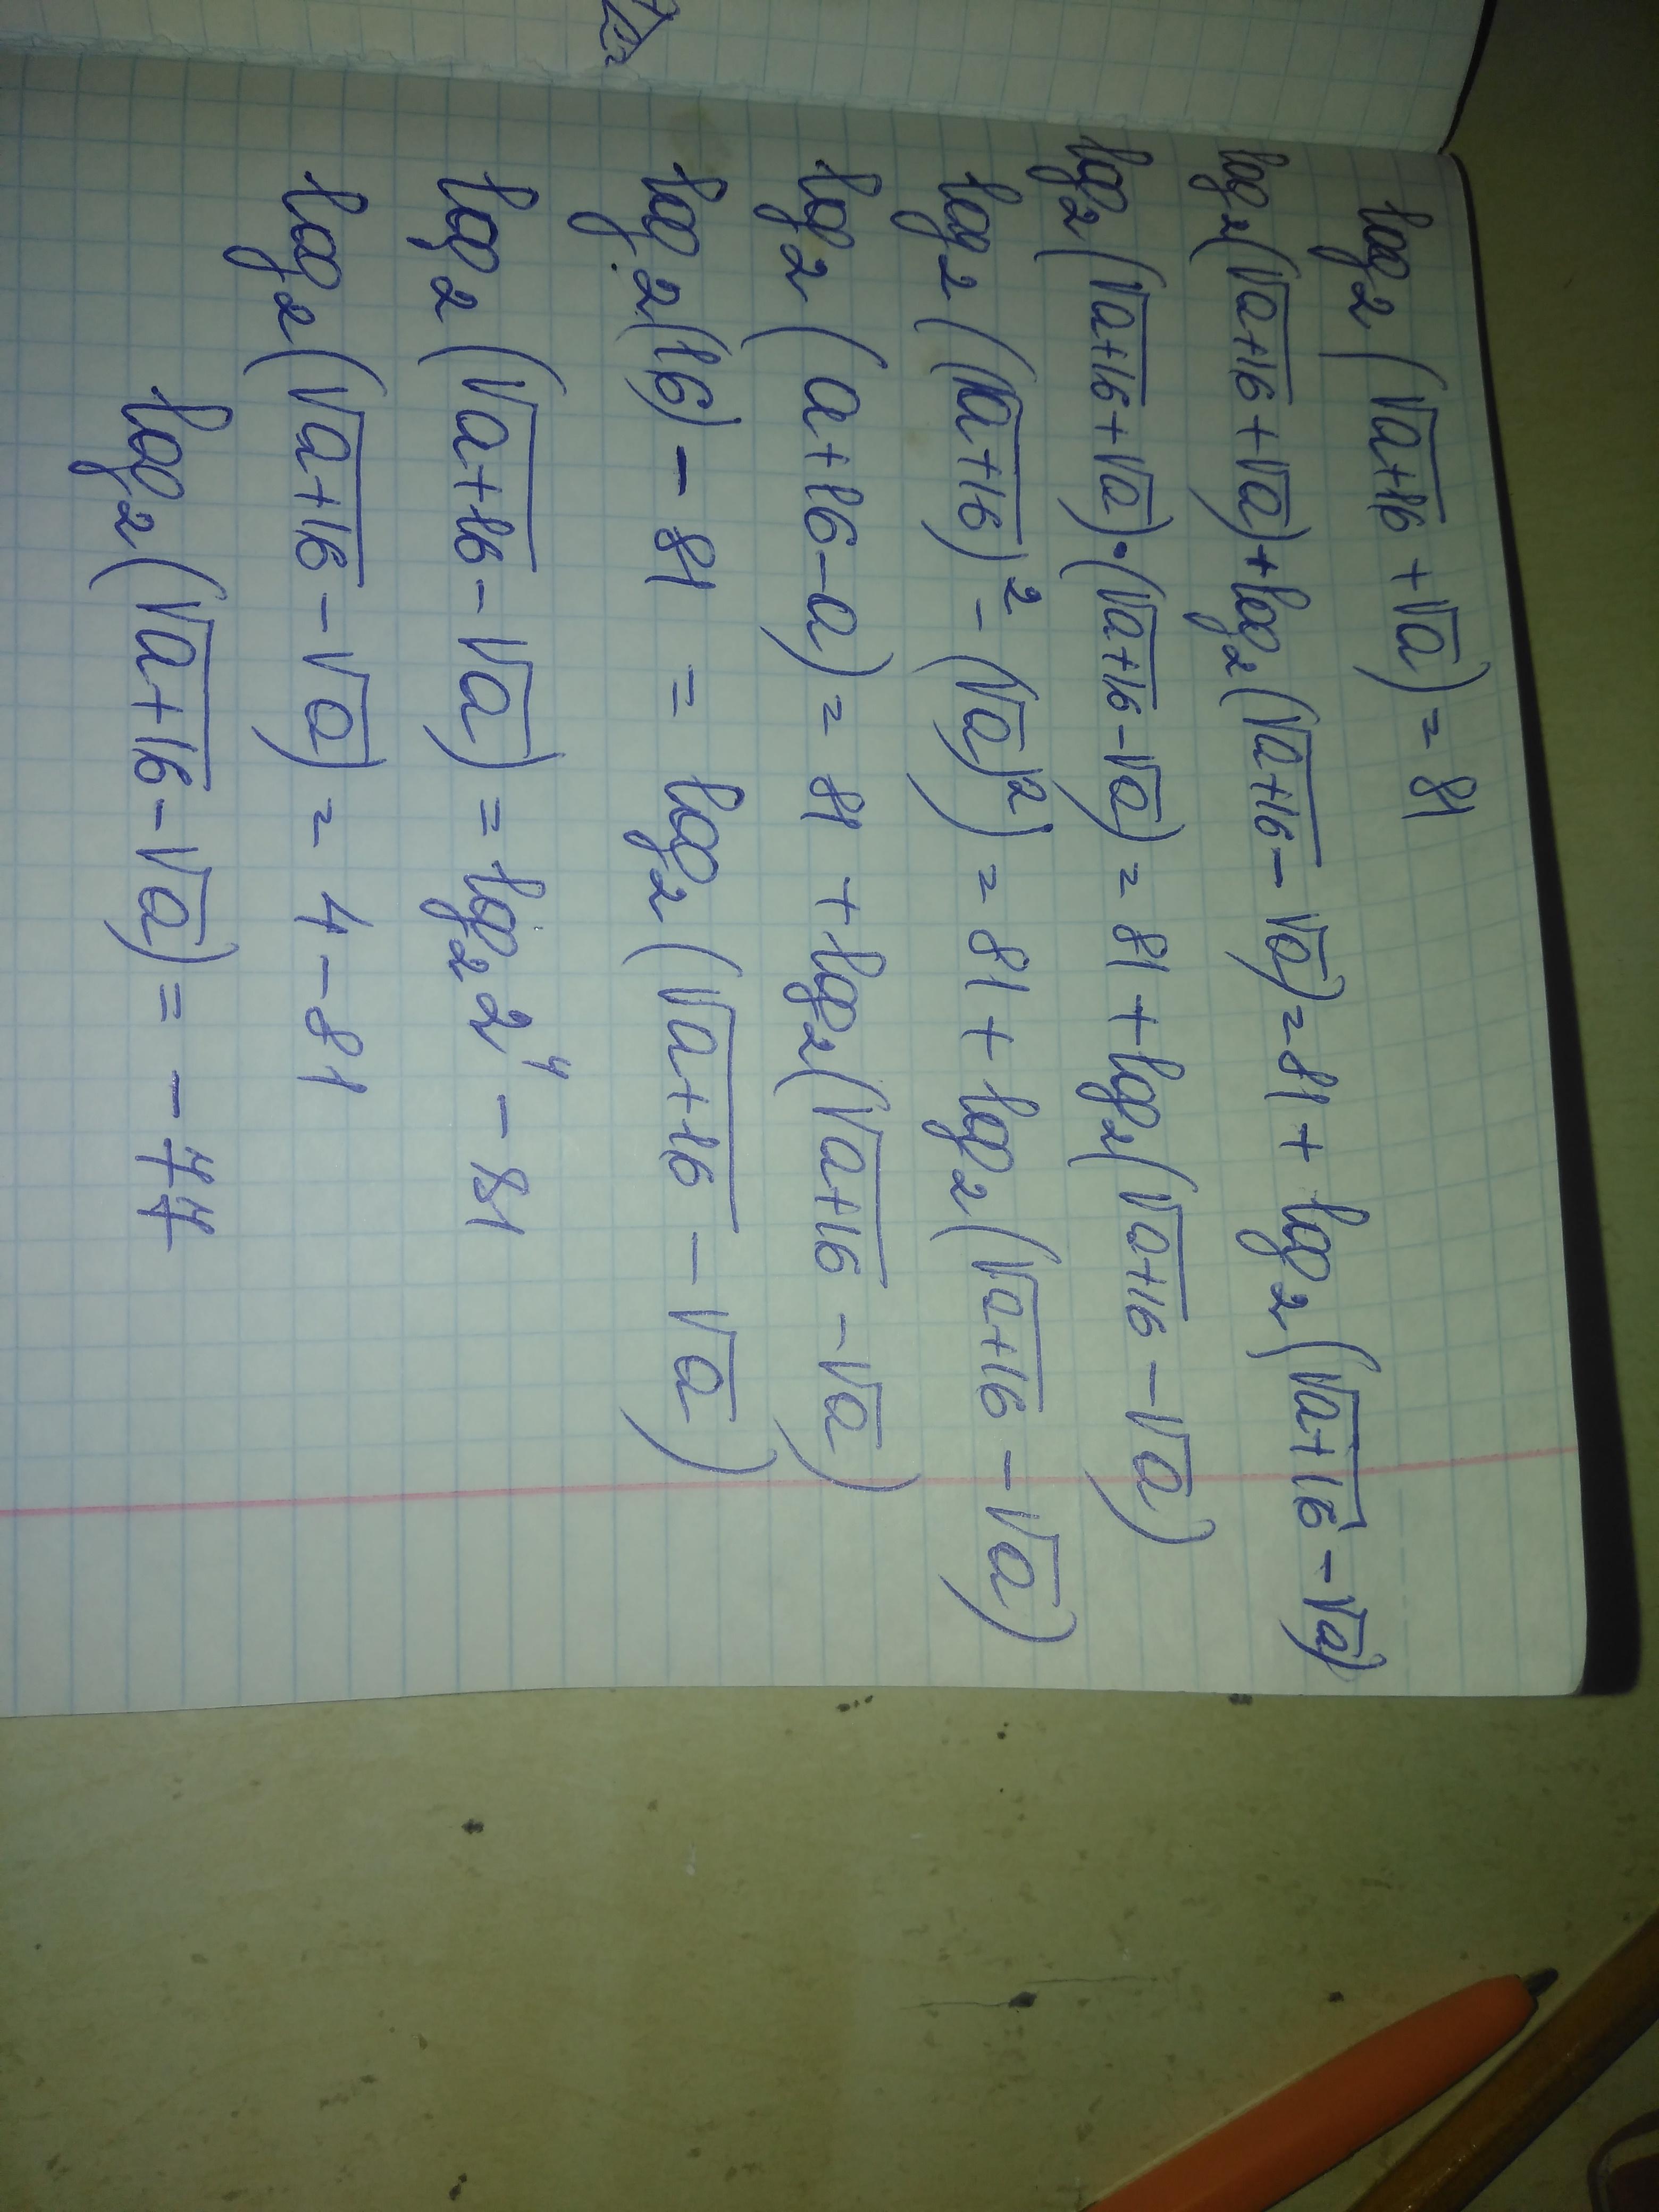 log₂(√(a+16) + √a) = 81
log₂(√(a+16) + √a) + log₂(√(a+16) - √a) = 81 + log₂(√(a+16) - √a)
log₂(√(a+16) + √a)·(√(a+16) - √a) = 81 + log₂(√(a+16) - √a)
log₂((√(a+16))² - (√a)²) = 81 + log₂(√(a+16) - √a)
log₂(a+16-a) = 81 + log₂(√(a+16) - √a)
log₂(16) - 81 = log₂(√(a+16) - √a)
log₂(√(a+16) - √a) = log₂2⁴ - 81
log₂(√(a+16) - √a) = 4 - 81
log₂(√(a+16) - √a) = -77